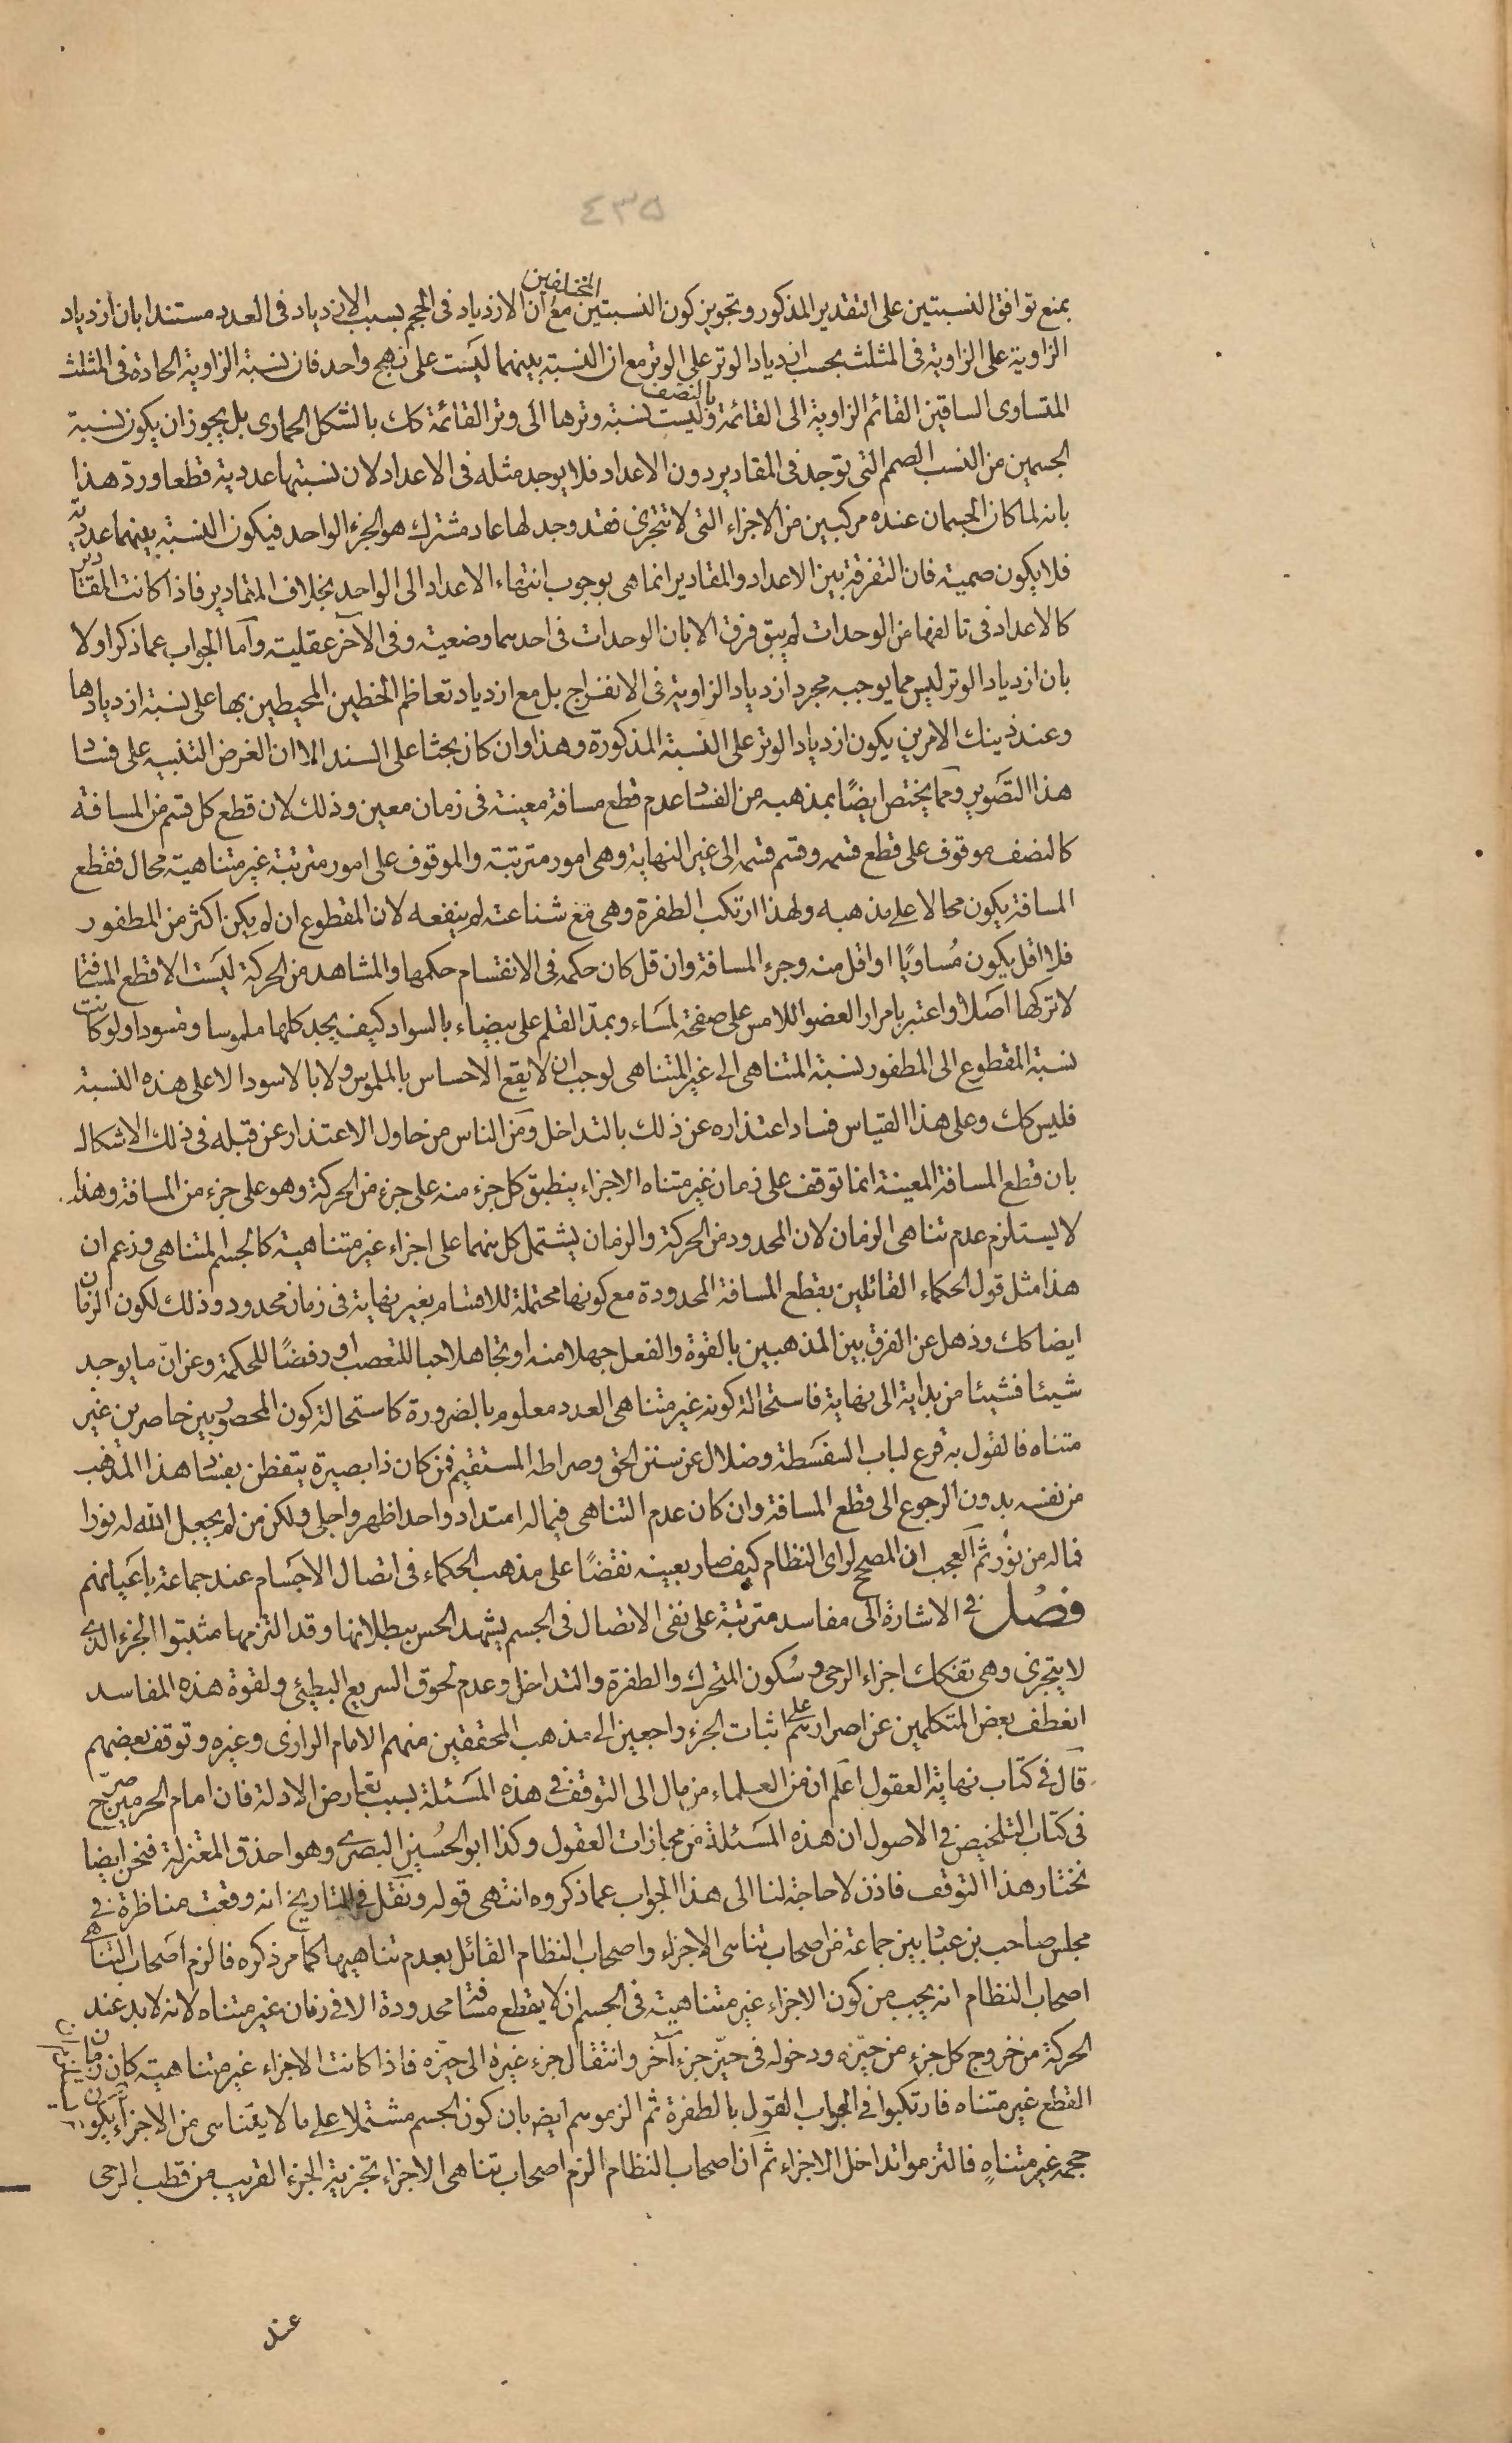 ٤٣٥
المختلفين
بمنع توافق النسبتين على التقدير المذكور وتجويز كون النسبتين مع ان الازدياد فى الحجم بسبب الازدياد فى العدد مستندا بان ازدياد
الزاوية على الزاوية فى المثلث بحسب ازدياد الوتر على الوتر مع ان النسبة بينهما ليست على نهج واحد فان نسبة الزاوية الحادة فى المثلث
بالنصف
المتساوى الساقين القائم الزاوية الى القائمة وليست نسبة وترها الى وتر القائمة كك بالشكل الحمارى بل يجوز ان يكون نسبة
الجسمين من النسب الصم التى توجد فى المقادير دون الاعداد فلا يوجد مثله فى الاعداد لان نسبتها عددية قطعا ورد هذا
بانه لما كان الجسمان عنده مركبين من الاجزاء التى لا تتجزى فقد وجد لها عاد مشترك هو الجزء الواحد فيكون النسبة بينهما عددية
فلا يكون صمية فان التفرقة بين الاعداد والمقادير انما هى بوجوب انتهاء الاعداد الى الواحد بخلاف المقادير فاذا كانت المقادير
كالاعداد فى تالفها من الوحدات لم يبق فرق الا بان الوحدات فى احدهما وضعية وفى الآخر عقلية وآما الجواب عما ذكر اولا
بان ازدياد الوتر ليس مما يوجبه مجرد ازدياد الزاوية فى الانفراج بل مع ازدياد تعاظم الخطين المحيطين بها على نسبة ازديادها
وعند ذينك الامرين يكون ازدياد الوتر على النسبة المذكورة وهذا وان كان بحثا على السند الا ان الغرض التنبيه على فساد
هذا التصوير ومما يختص ايضًا بمذهبه من الفساد عدم قطع مسافة معينة فى زمان معين وذلك لان قطع كل قسم من المسافة
كالنصف موقوف على قطع قسمه وقسم قسمه الى غير النهاية وهى امور مترتبة والموقوف على امور مترتبة غير متناهية محال فقطع
المسافة يكون محالا على مذهبه ولهذا ارتكب الطفرة وهى مع شناعته لم ينفعه لان المقطوع ان لم يكن اكثر من المطفور
فلا اقل يكون مُساويًا او اقل منه وجزء المسافة وان قل كان حكمه فى الانقسام حكمها والمشاهد من الحركة ليست الا قطع المسافة
لا تركها اصلا واعتبر بامرار العضو اللامس على صفحة لمساء وبمدّ القلم على بيضاء بالسواد كيف يجد كلها ملموسا ومسودا ولو كانت
نسبة المقطوع الى المطفور نسبة المتناهى الى غير المتناهى لوجب ان لا يقع الاحساس بالملموس ولا بالاسود الا على هذه النسبة
فليس كك وعلى هذا القياس فساد اعتذاره عن ذلك بالتداخل ومن الناس من حاول الاعتذار عن قبله فى ذلك الاشكال
بان قطع المسافة المعينة انما توقف على زمان غير متناه الاجزاء ينطبق كل جزء منه على جزء من الحركة وهو على جزء من المسافة وهذا
لا يستلزم عدم تناهى الزمان لان المحدود من الحركة والزمان يشتمل كل منهما على اجزاء غير متناهية كالجسم المتناهى وزعم ان
هذا مثل قول الحكماء القائلين بقطع المسافة المحدودة مع كونها محتملة للاقسام بغير نهاية فى زمان محدود وذلك لكون الزمان
ايضا كك وذهل عن الفرق بين المذهبين بالقوة والفعل جهلا منه او تجاهلا حبا للتعصب او رفضًا للحكمة وعن انّ ما يوجد
شيئا فشيئا من بداية الى نهاية فاستحالة كونه غير متناهى العدد معلوم بالضرورة كاستحالة كون المحصور بين حاصرين غير
متناه فالقول به قرع لباب السفسطة وضلال عن سنن الحق وصراطه المستقيم فمن كان ذا بصيرة يتفطن بفساد هذا المذهب
من نفسه بدون الرجوع الى قطع المسافة وان كان عدم التناهى فيما له امتداد واحد اظهر واجلى ولكن من لم يجعل الله له نورا
فما له من نور ثم العجب ان المصحح لراى النظام كيف صار بعينه نقضًا على مذهب الحكماء فى اتصال الاجسام عند جماعة باعيانهم
فصل فى الاشارة الى مفاسد مترتبة على نفى الاتصال فى الجسم يشهد الحس ببطلانها وقد التزمها مثبتوا الجزء الذى
لا يتجزى وهى تفكك اجزاء الرحى وسُكون المتحرك والطفرة والتداخل وعدم لحوق السريع البطئى ولقوة هذه المفاسد
انعطف بعض المتكلمين عن اصرارهم على اثبات الجزء راجعين الى مذهب المحققين منهم الامام الرازى وغيره وتوقف بعضهم
قال فى كتاب نهاية العقول اعلم ان من العلماء من مال الى التوقف فى هذه المسئلة بسبب تعارض الادلة فان امام الحرمين صرّح
فى كتاب التلخيص فى الاصول ان هذه المسئلة من محارات العقول وكذا ابو الحسين البصرى وهو احذق المعتزلة فنحن ايضا
نختار هذا التوقف فاذن لا حاجة لنا الى هذا الجواب عما ذكروه انتهى قوله ونقل فى التاريخ انه وقعت مناظرة فى
مجلس صاحب بن عباد بين جماعة من اصحاب تناهى الاجزاء واصحاب النظام القائل بعدم تناهيها كما مر ذكره فالزم اصحاب التناهى
اصحاب النظام انه يجب من كون الاجزاء غير متناهية فى الجسم ان لا يقطع مسافة محدودة الا فى زمان غير متناه لانه لا بد عند
الحركة من خروج كل جزء من حيّزه ودخوله فى حيّز جزء آخر وانتقال جزء غيره الى حيّزه فاذا كانت الاجزاء غير متناهية كان زمان
القطع غير متناه فارتكبوا فى الجواب القول بالطفرة ثم الزموهم ايض بان كون الجسم مشتملا على ما لا يتناهى من الاجزاء يكون
حجمه غير متناهٍ فالتزموا تداخل الاجزاء ثم ان اصحاب النظام الزم اصحاب تناهى الاجزاء تجزية الجزء القريب من قطب الرحى
عند